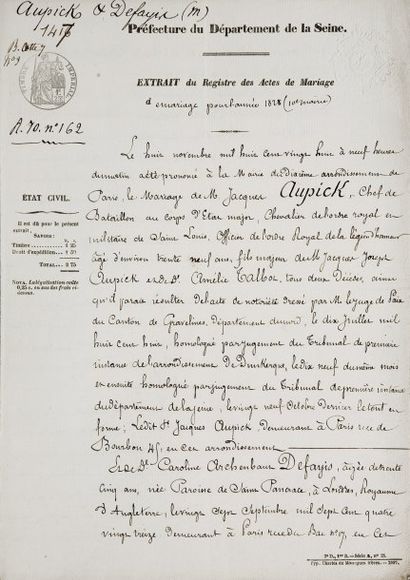 Aupick & Defayis (m)
1417
B. Cotte 7
N° 9
Préfecture du Département de la Seine.
TIMBRE IMPERIAL
A. 70. n° 162
EXTRAIT du Registre des Actes de Mariage
de mariage pour l'année 1828 (10e mairie)
Le huit novembre mil huit cent vingt huit à neuf heures
du matin a été prononcé à la Mairie du Dixième arrondissement de
Paris, le Mariage de M. Jacques Aupick, Chef de
Bataillon au corps d'Etat major, Chevalier de l'ordre royal et
militaire de Saint Louis, Officier de l'ordre Royal de la légion d'honneur
âgé d'environ trente neuf ans, fils majeur de M. Jacques Joseph
Aupick et de De. Amélie Talbot, tous deux Décédés, ainsi
qu'il paraît résulter de l'acte de notoriété dressé par M. le juge de Paix
du Canton de Gravelines, département du nord, le dix Juillet mil
huit cent huit, homologué par jugement du Tribunal de première
instance de l'arrondissement de Dunkerque, le dix neuf du même mois
et ensuite homologué par jugement du Tribunal de première instance
du département de la Seine, le vingt neuf Octobre Dernier le tout en
forme; Ledit Sr. Jacques Aupick demeurant à Paris rue de
Bourbon 45, en cet arrondissement
Et de De. Caroline Archenbaut Defayis, âgée de trente
cinq ans, née Paroisse de Saint Pancrace, à Londres, Royaume
d'Angleterre, le vingt sept Septembre mil sept cent quatre
vingt treize demeurant à Paris rue du Bac n° 17, en cet
ÉTAT CIVIL.
Il est dû pour le présent
extrait.
SAVOIR:
Timbre
Droit d'expédition
TOTAL
NOTA.
Typ. Charles de Mourgues frères. — 1867.